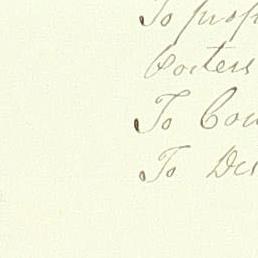 To prop
Porters
To Cou
To De